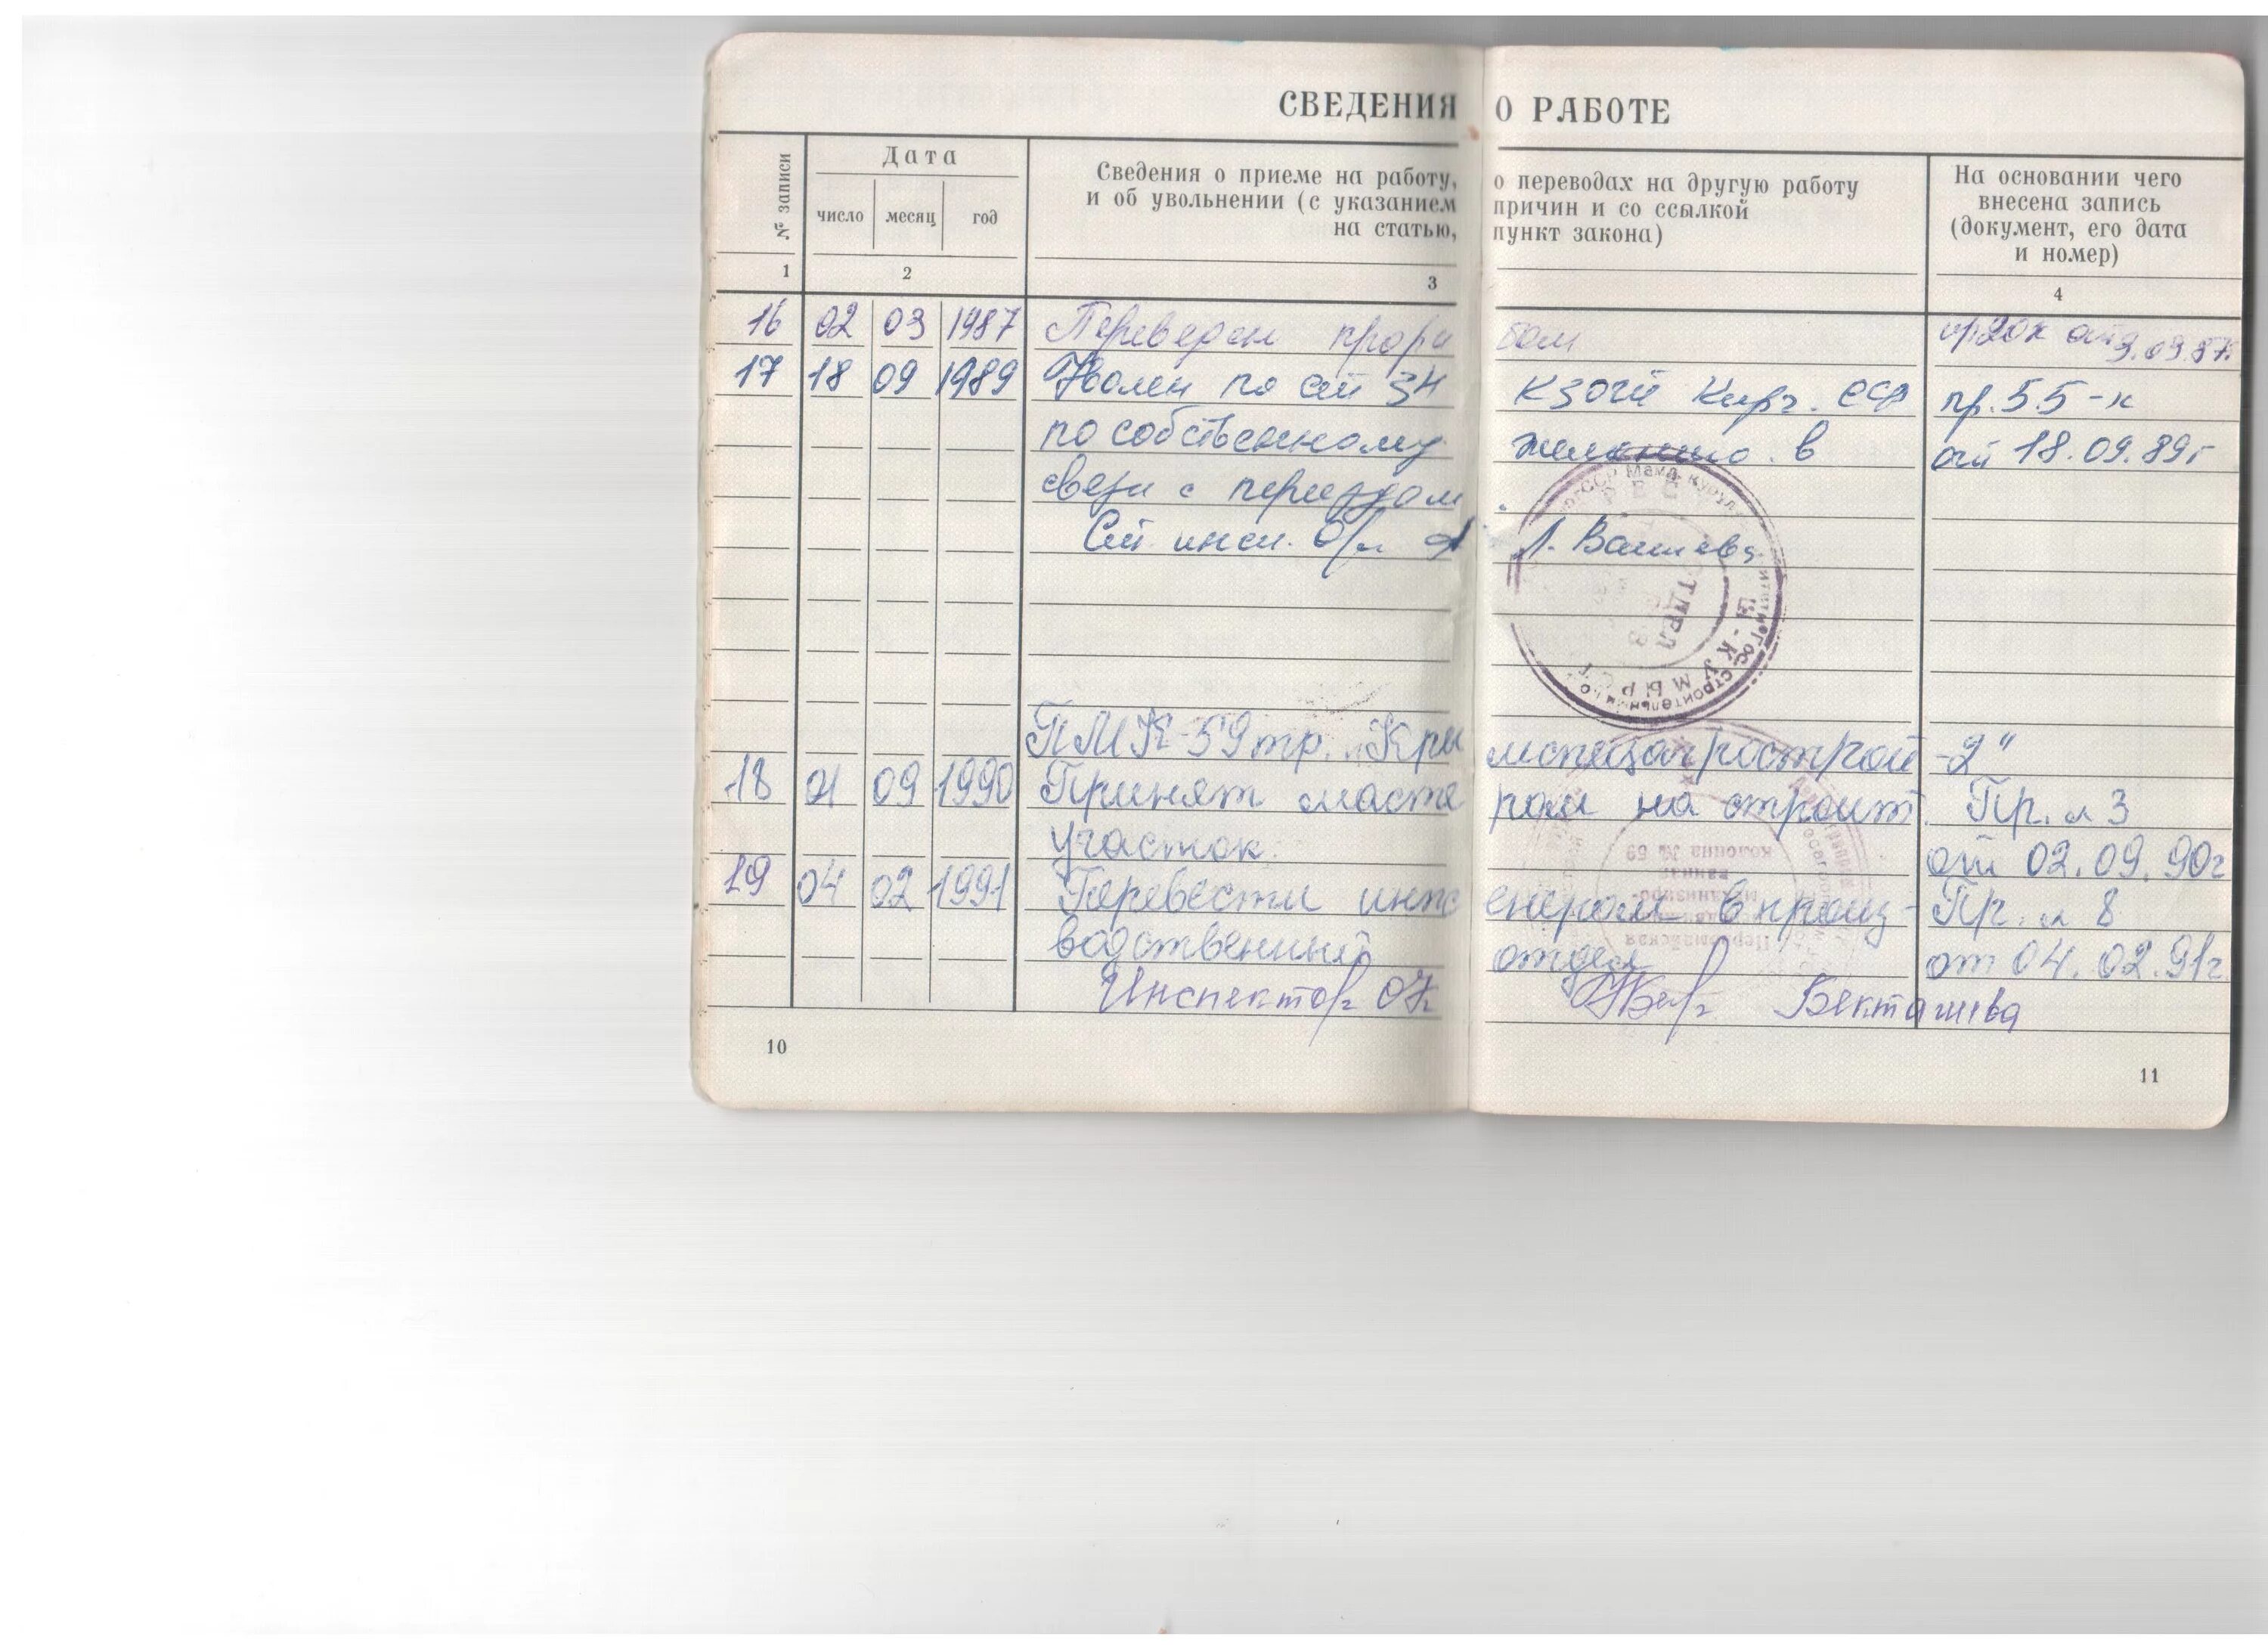 СВЕДЕНИЯ О РАБОТЕ
№ записи
Дата
число месяц год
Сведения о приеме на работу, о переводах на другую работу
и об увольнении (с указанием причин и со ссылкой
на статью, пункт закона)
На основании чего
внесена запись
(документ, его дата
и номер)
1 2 3 4
16 02 03 1987 Переведен прорабом
17 18 09 1989 Уволен по ст 34 КЗОТ Кирг. ССР пр. 55-к
по собственному желанию в от 18.09.89г
связи с переездом
Ст. инсп. Л. Вашаева
ПМК-59 тр. "Крымспецагрострой-2"
18 01 09 1990 Принят мастером на строит. Пр. № 3
участок. от 02.09.90г
19 04 02 1991 Перевести инженером в произ- Пр. № 8
водственный отдел от 04.02.91г
Инспектор ОК Бекташева
10
11